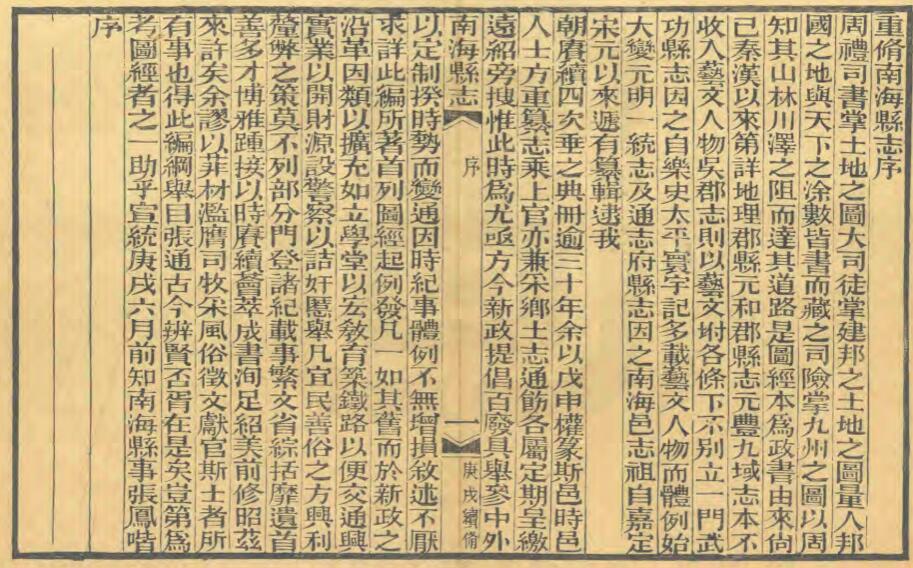 重脩南海縣志序
周禮司書掌土地之圖大司徒掌建邦之土地之圖量人邦
國之地與天下之涂數皆書而藏之司險掌九州之圖以周
知其山林川澤之阻而達其道路是圖經本爲政書由來尚
已秦漢以來第詳地理郡縣元和郡縣志元豐九域志本不
收入藝文人物吳郡志則以藝文坿各條下不別立一門武
功縣志因之自樂史太平寰宇記多載藝文人物而體例始
大變元明一統志及通志府縣志因之南海邑志祖自嘉定
宋元以來遞有纂輯逮我
朝賡續四次垂之典冊逾三十年余以戊申權篆斯邑時邑
人士方重纂志乘上官亦兼采鄉土志通飭各屬定期呈繳
遠紹旁搜惟此時爲尤亟方今新政提倡百廢具舉參中外
南海縣志
序
一
庚戌續脩
以定制揆時勢而變通因時紀事體例不無增損敘述不厭
求詳此編所著首列圖經起例發凡一如其舊而於新政之
沿革因類以擴充如立學堂以宏敎育築鐵路以便交通興
實業以開財源設警察以詰奸慝舉凡宜民善俗之方興利
釐弊之策莫不列部分門登諸紀載事繁文省綜括靡遺首
善多才博雅踵接以時賡續薈萃成書洵足紹美前修昭茲
來許矣余謬以菲材濫膺司牧采風俗徵文獻官斯土者所
有事也得此編綱舉目張通古今辨賢否胥在是矣豈第爲
考圖經者之一助乎宣統庚戌六月前知南海縣事張鳳喈
序